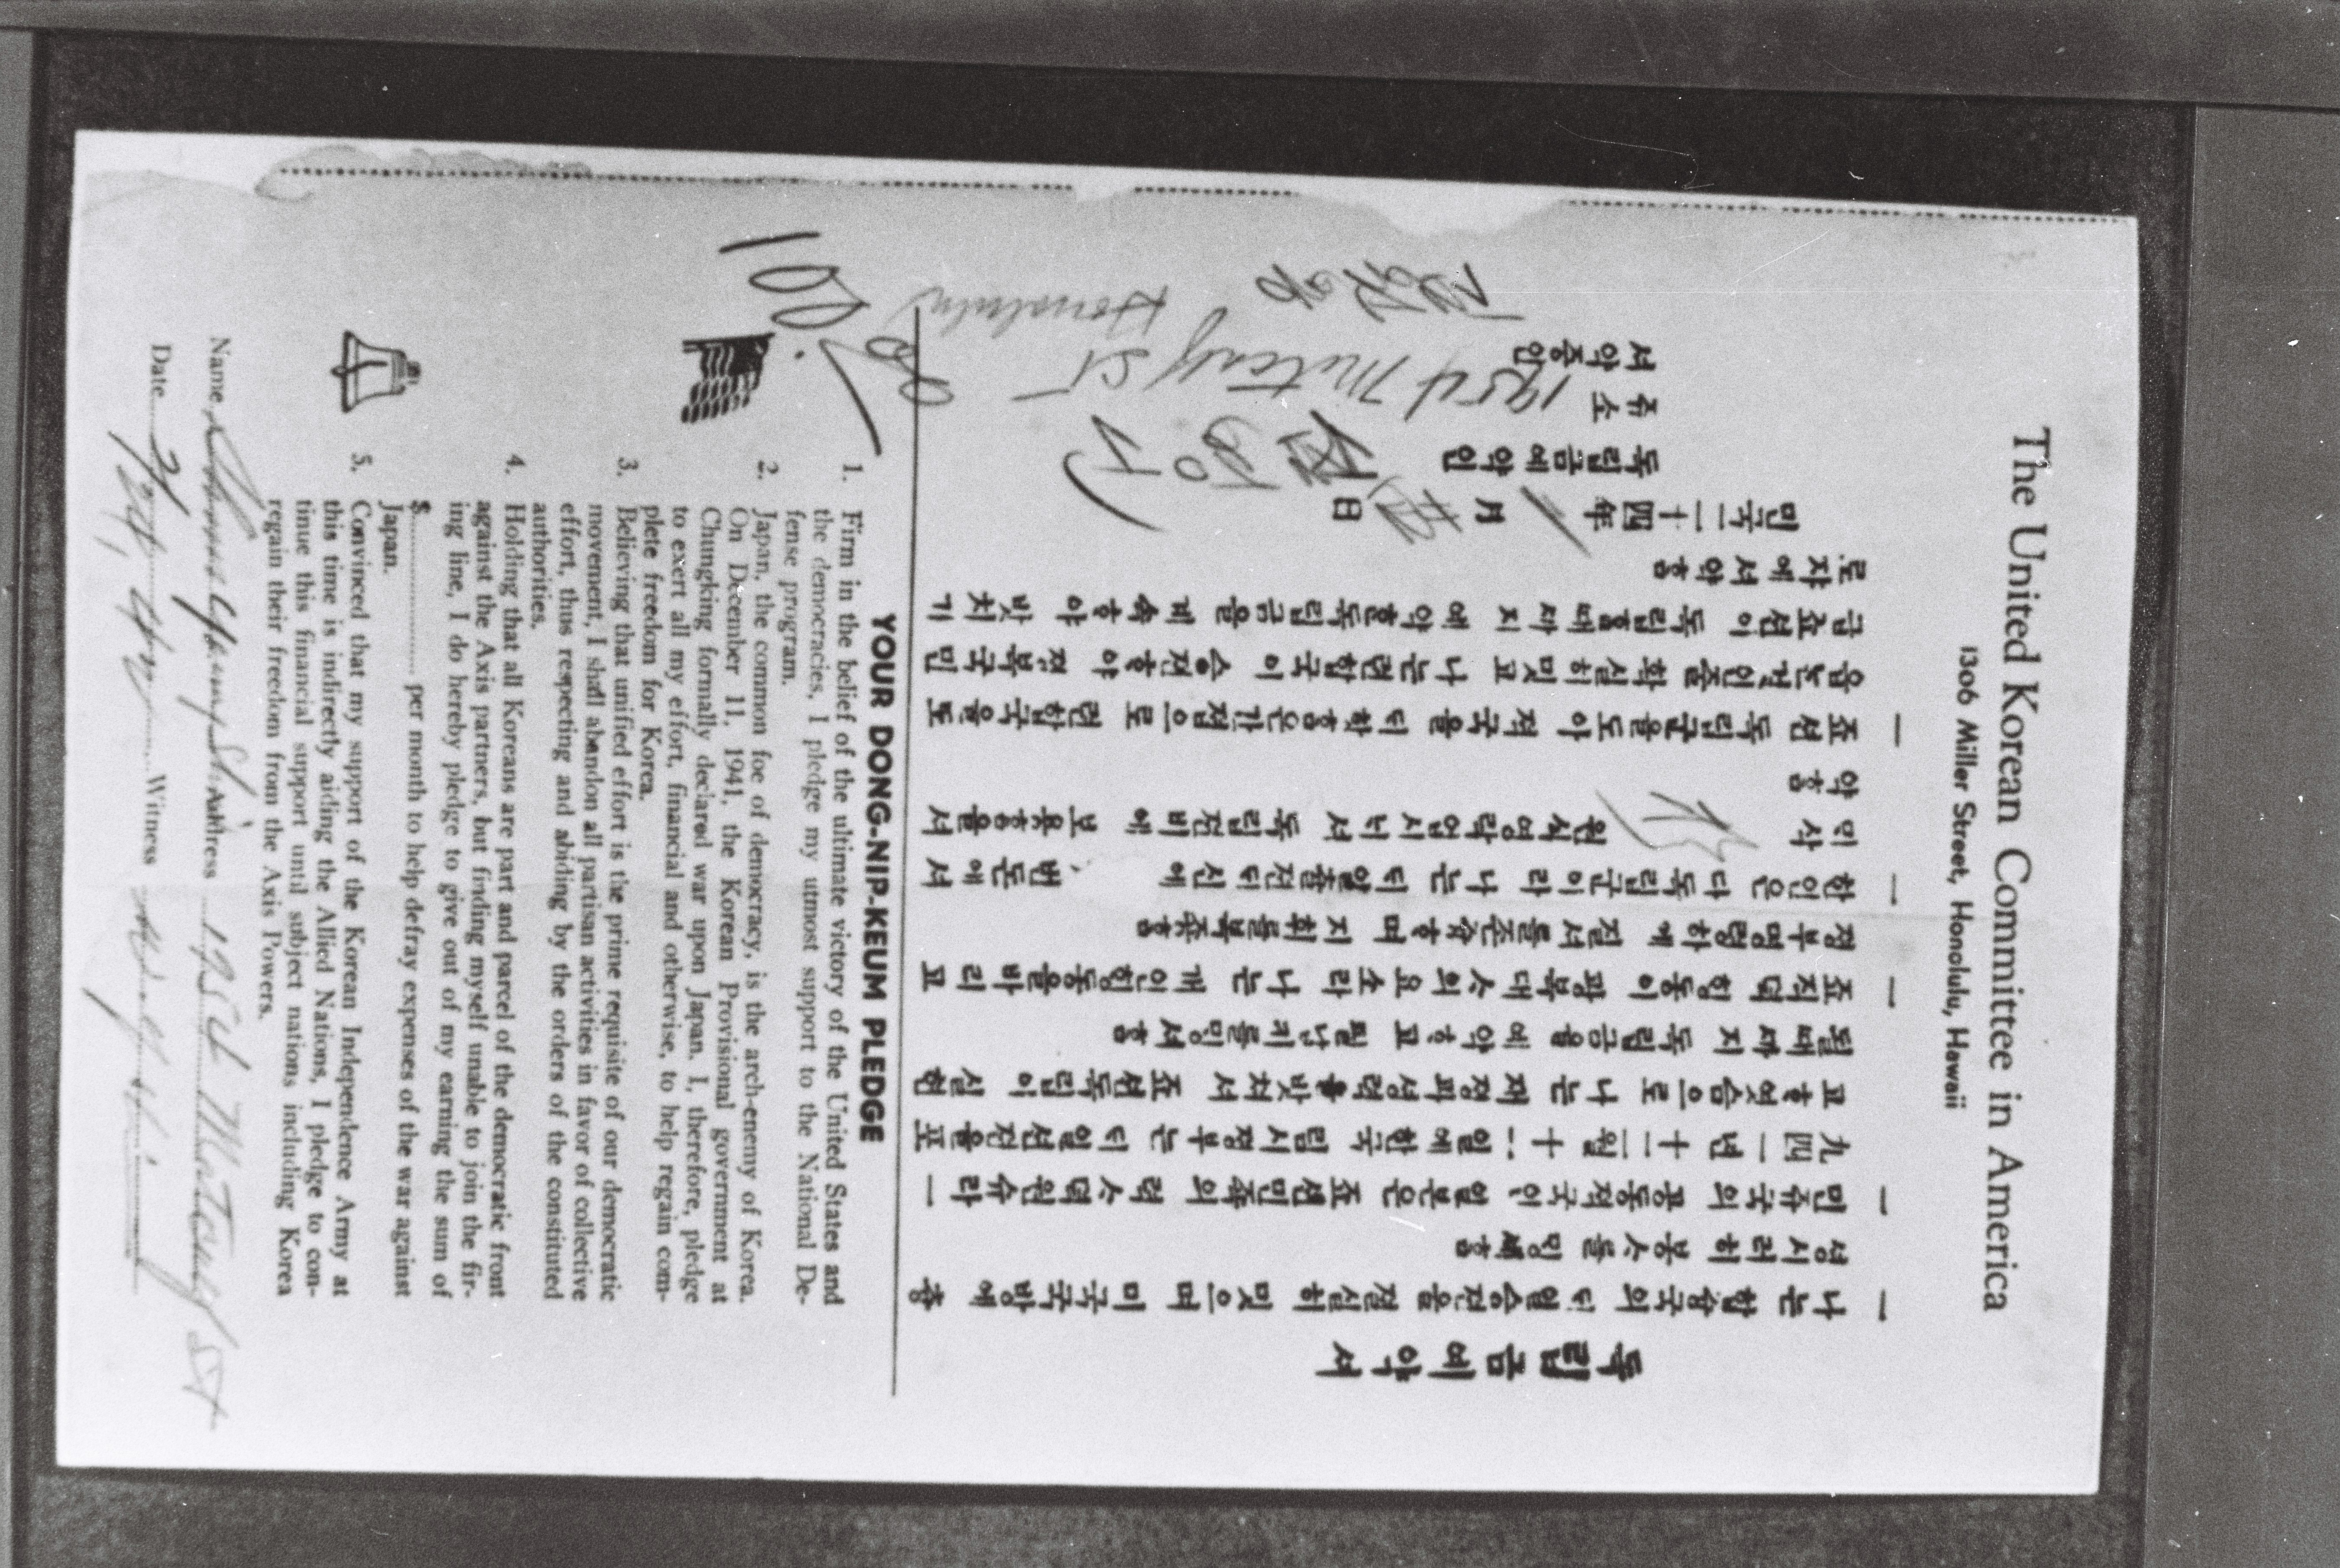 The United Korean Committee in America
1306 Miller Street, Honolulu, Hawaii
독립금예약서
一 나는 합중국의 뎌일승전을 절실히 밋으며 미국국방에 충
성시러히 봉ᄉᆞ를 ᄆᆡᆼ셰홈
一 민쥬국의 공동적국인 일본은 죠션민죡의 력ᄉᆞ뎍원슈라 一
九四一년 十二월 十一일에 한국 림시정부는 뎌일션젼을포
고ᄒᆞ엿슴으로 나는 재정과셩력을밧쳐서 죠션독립이 실현
될때까지 독립금을 예약ᄒᆞ고 필납키를ᄆᆡᆼ셔홈
一 죠직뎍 ᄒᆡᆼ동이 광복대ᄉᆞ의요소라 나는 개인ᄒᆡᆼ동을바리고
정부명령하에 질서를준슈ᄒᆞ며 지휘를복죵홈
一 한인은 다 독립군이라 나는 뎌일츌젼뎌신에 번돈에서
ᄆᆡ삭 원식영락업시ᄂᆡ셔 독립젼비에 보용홈을서
약홈
一 죠션 독립군을도아 적국을 뎌항홈은간접으로 련합국을도
음는것인줄 확실히밋고 나는련합국이 승젼ᄒᆞ야 젹복국민
급죠션이 독립홀때까지 예약한독립금을 계속ᄒᆞ야 밧치기
로자에서약홈
민국二十四年 月 日
독립금예약인
쥬소 St Honolulu
서약증인
YOUR DONG-NIP-KEUM PLEDGE
1. Firm in the belief of the ultimate victory of the United States and
the democracies, I pledge my utmost support to the National De-
fense program.
2. Japan, the common foe of democracy, is the arch-enemy of Korea.
On December 11, 1941, the Korean Provisional government at
Chungking formally declared war upon Japan. I, therefore, pledge
to exert all my effort, financial and otherwise, to help regain com-
plete freedom for Korea.
3. Believing that unified effort is the prime requisite of our democratic
movement, I shall abandon all partisan activities in favor of collective
effort, thus respecting and abiding by the orders of the constituted
authorities.
4. Holding that all Koreans are part and parcel of the democratic front
against the Axis partners, but finding myself unable to join the fir-
ing line, I do hereby pledge to give out of my earning the sum of
$............ per month to help defray expenses of the war against
Japan.
5. Convinced that my support of the Korean Independence Army at
this time is indirectly aiding the Allied Nations, I pledge to con-
tinue this financial support until subject nations including Korea
regain their freedom from the Axis Powers.
Name Address St
Date Witness